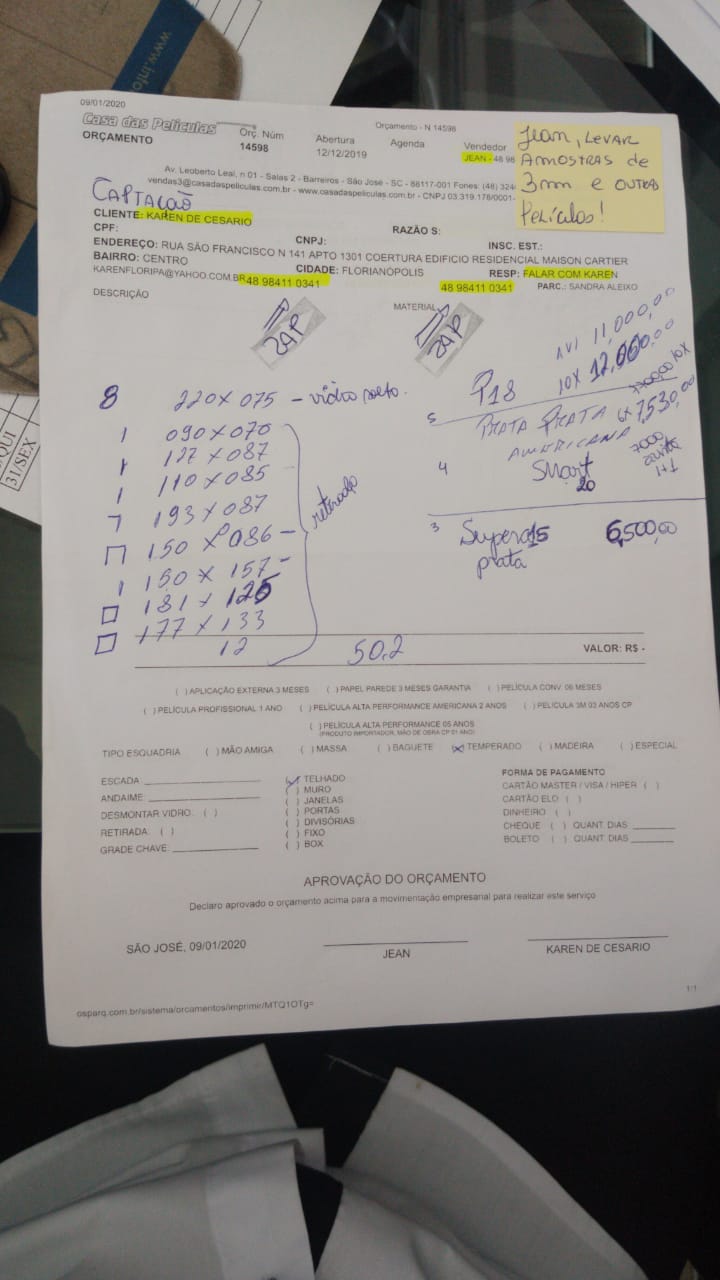 www.info
QUI
31/SEX
09/01/2020
Casa das Películas
ORÇAMENTO
Orç. Núm
14598
Abertura
12/12/2019
Orçamento - N 14598
Agenda
Vendedor
JEAN - 48 98
Jean, LEVAR
AMOSTRAS de
3mm e OUTRAS
Películas!
Av. Leoberto Leal, n 01 - Salas 2 - Barreiros - São José - SC - 88117-001 Fones: (48) 324
vendas3@casadaspeliculas.com.br - www.casadaspeliculas.com.br - CNPJ 03.319.178/0001-
CAPTAÇÃO
CLIENTE: KAREN DE CESARIO
RAZÃO S:
CPF:
CNPJ:
INSC. EST.:
ENDEREÇO: RUA SÃO FRANCISCO N 141 APTO 1301 COERTURA EDIFICIO RESIDENCIAL MAISON CARTIER
BAIRRO: CENTRO
CIDADE: FLORIANÓPOLIS
RESP: FALAR COM KAREN
KARENFLORIPA@YAHOO.COM.BR 48 98411 0341
48 98411 0341
PARC.: SANDRA ALEIXO
DESCRIÇÃO
MATERIAL
ZAP
ZAP
8 220 X 075 - vidro solto.
1 090 X 070
1 127 X 087
1 110 X 085
193 X 087
150 X 086 -
1 150 X 157 -
181 X 125
177 X 133
12
50.2
AVI 11,000,00
5 P18 10X 12,000,00
PRATA PRATA 6X 7,530,00
AMERICANA
4 Smart
20
7000
1+1
3 Supera 15 6,500,00
prata
VALOR: R$ -
( ) APLICAÇÃO EXTERNA 3 MESES ( ) PAPEL PAREDE 3 MESES GARANTIA ( ) PELÍCULA CONV. 06 MESES
( ) PELÍCULA PROFISSIONAL 1 ANO ( ) PELÍCULA ALTA PERFORMANCE AMERICANA 2 ANOS ( ) PELICULA 3M 03 ANOS CP
( ) PELÍCULA ALTA PERFORMANCE 05 ANOS
(PRODUTO IMPORTADOR, MÃO DE OBRA CP 01 ANO)
TIPO ESQUADRIA ( ) MÃO AMIGA ( ) MASSA ( ) BAGUETE (X) TEMPERADO ( ) MADEIRA ( ) ESPECIAL
ESCADA:
ANDAIME:
DESMONTAR VIDRO: ( )
RETIRADA: ( )
GRADE CHAVE:
(✓) TELHADO
( ) MURO
( ) JANELAS
( ) PORTAS
( ) DIVISÓRIAS
( ) FIXO
( ) BOX
FORMA DE PAGAMENTO
CARTÃO MASTER / VISA / HIPER ( )
CARTÃO ELO ( )
DINHEIRO ( )
CHEQUE ( ) QUANT. DIAS
BOLETO ( ) QUANT. DIAS
APROVAÇÃO DO ORÇAMENTO
Declaro aprovado o orçamento acima para a movimentação empresarial para realizar este serviço
SÃO JOSÉ, 09/01/2020
JEAN
KAREN DE CESARIO
1/1
osparq.com.br/sistema/orcamentos/imprimir/MTQ1OTg=